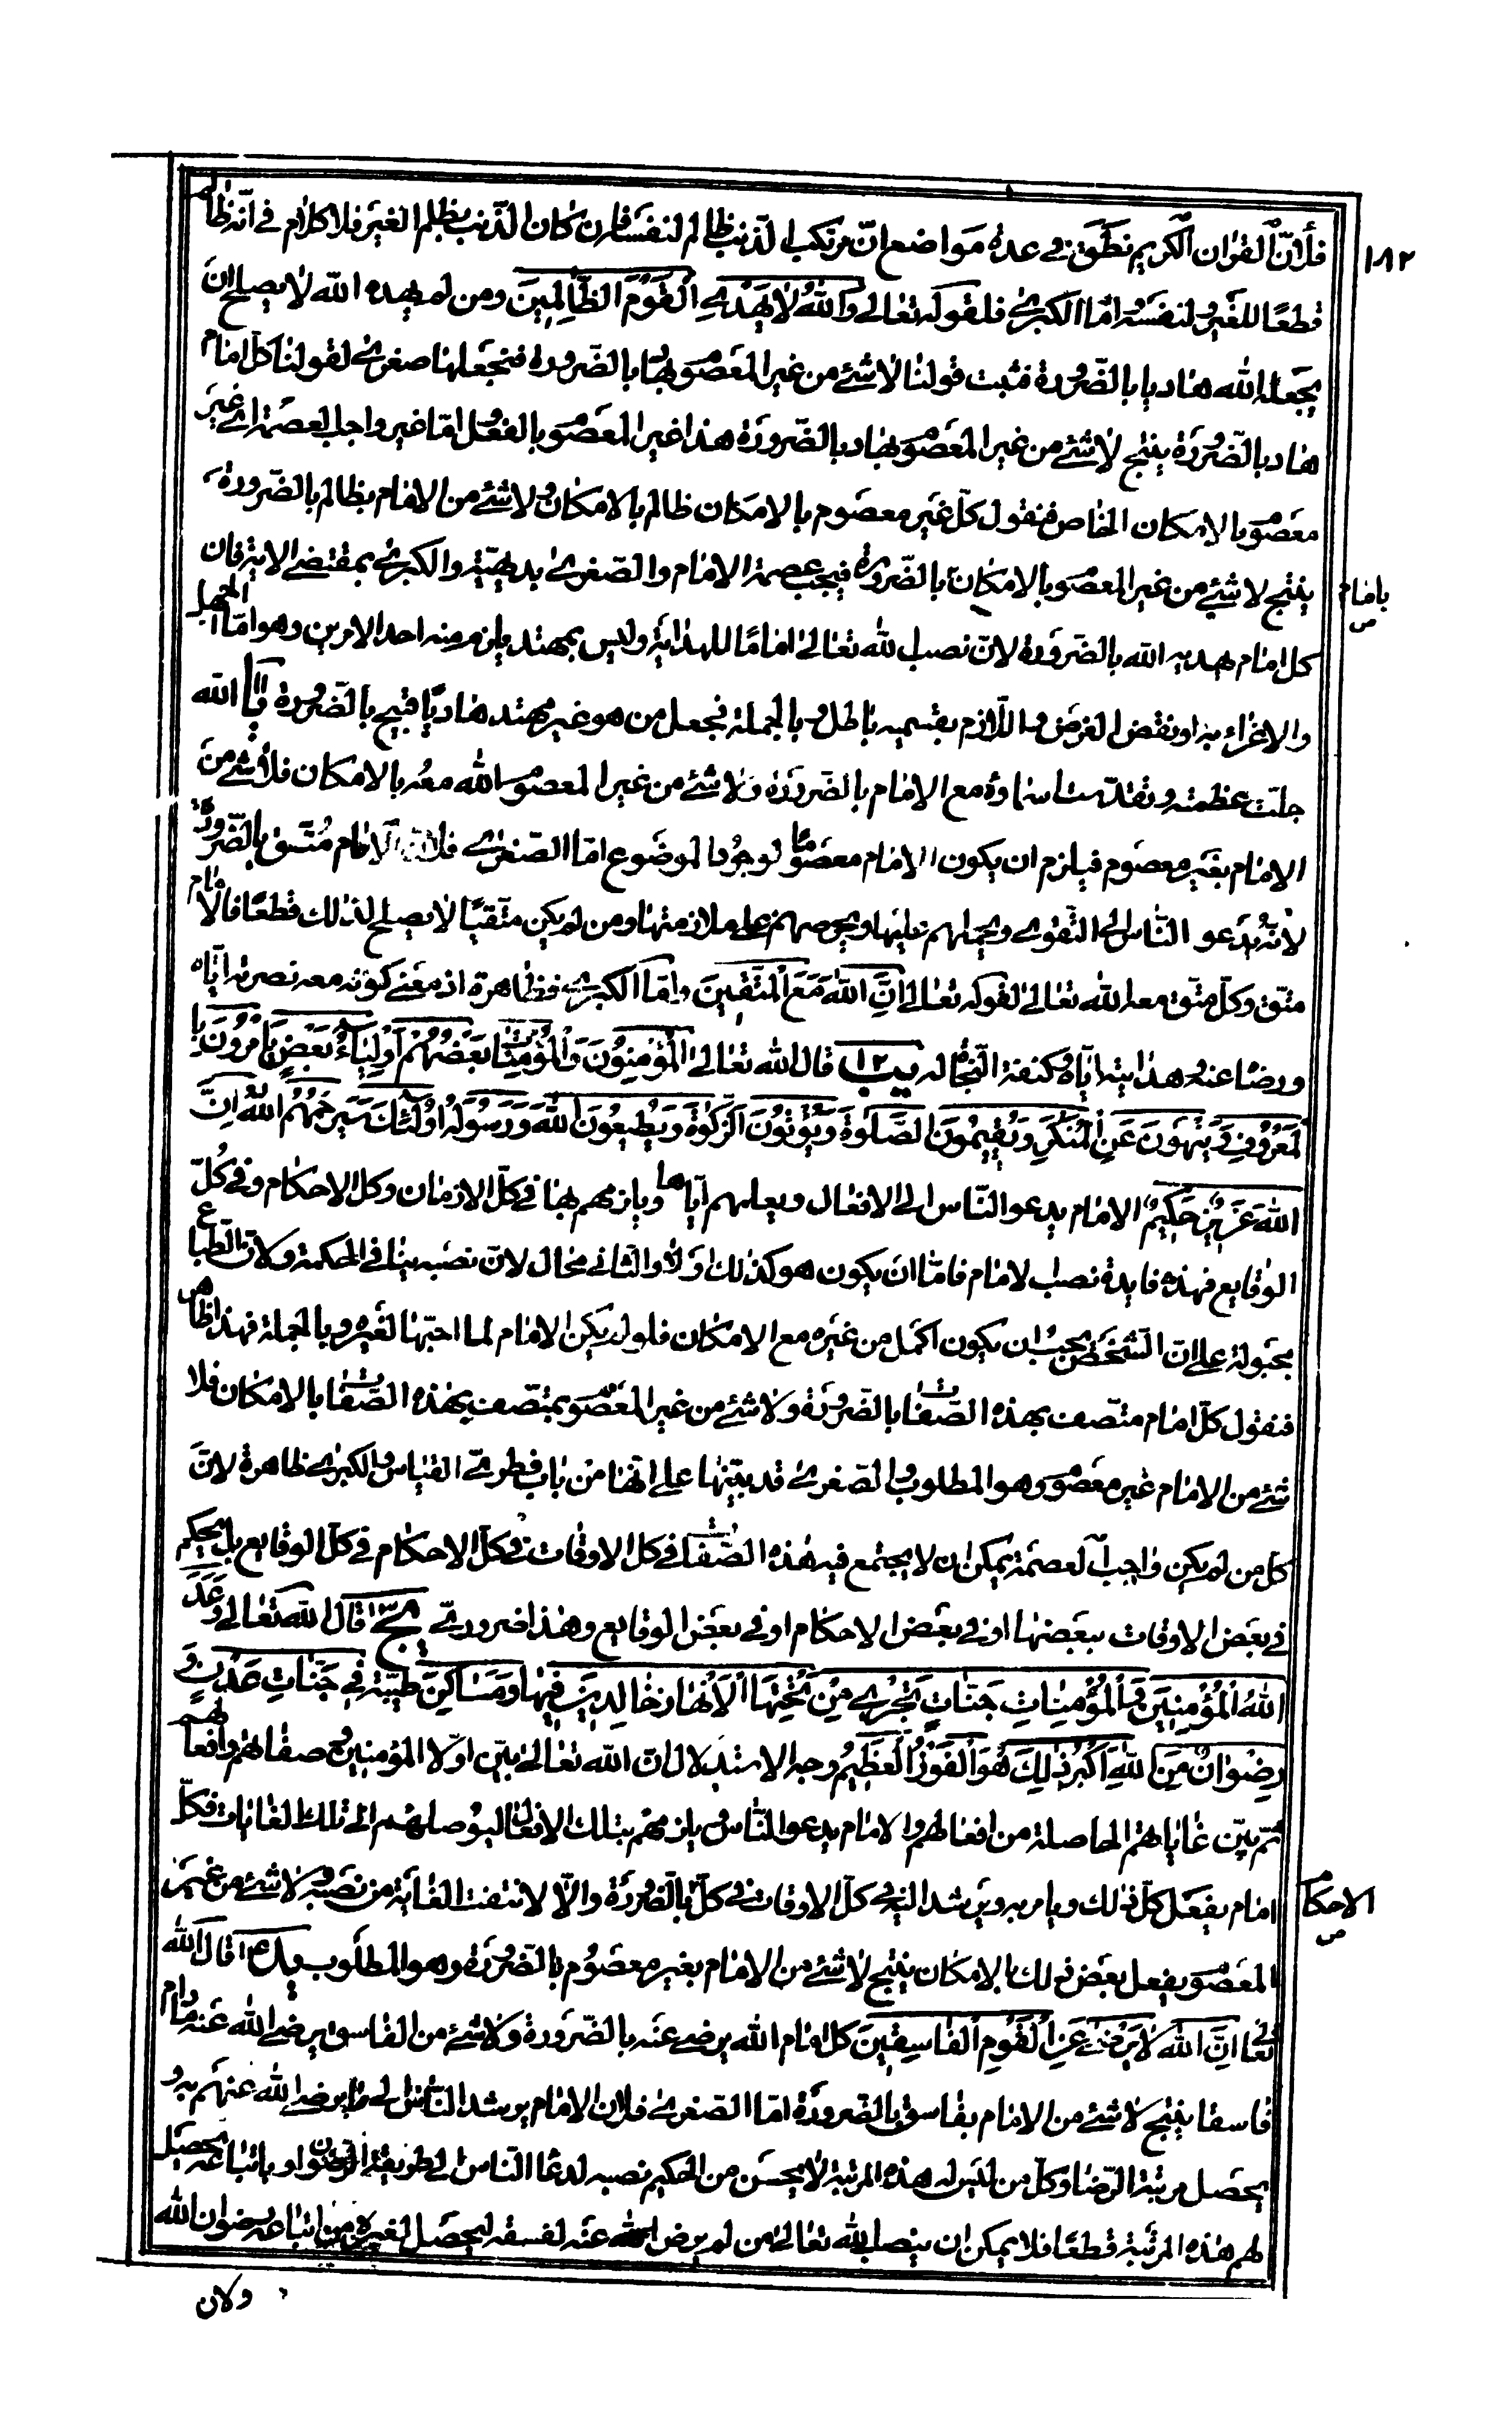 ١٨٢
فلأنّ القران الكريم نطق في عدة مواضع انّ مرتكب الذنب ظالم لنفسه فان كان الذنب بظلم الغير فلا كلام في انه ظالم
قطعًا للغير ولنفسه امّا الكبرى فلقوله تعالى والله لا يهدي القوم الظّالمين ومن لم يهده الله لا يصلح ان
يجعله الله هاديا بالضّرورة فثبت قولنا لا شئ من غير المعصوم بهاد بالضّرورة فنجعلها صغرى لقولنا كل امام
هاد بالضّرورة ينتج لا شئ من غير المعصوم بهاد بالضّرورة هذا غير المعصوم بالفعل امّا غير واجب العصمة اى غير
معصوم بالامكان الخاص فنقول كلّ غير معصوم بالامكان ظالم بالامكان ولا شئ من الامام بظالم بالضّرورة
ينتج لا شئ من غير المعصوم بالامكان بالضّرورة فيجب عصمة الامام والصّغرى بديهيّة والكبرى بمقتضى الاية فان
بامام
ص
كل امام يهديه الله بالضّرورة لانّ نصب الله تعالى امامًا للهداية وليس بمهتد يلزم منه احد الامرين وهو امّا الجهل
والاغراء به او نقض الغرض واللّازم بقسميه باطل وبالجملة فجعل من هو غير مهتد هاديًا قبيح بالضّرورة يا الله
جلّت عظمته وتقدّست اسماؤه مع الامام بالضّرورة ولا شئ من غير المعصوم الله معه بالامكان فلا شئ من
الامام بغير معصوم فيلزم ان يكون الامام معصومًا لوجود الموضوع امّا الصّغرى فلانّ الامام متّق بالضّرورة
لانّه يدعو النّاس الى التّقوى ويحملهم عليها ويحرصهم على ملازمتها ومن لم يكن متّقيًا لا يصلح لذلك قطعًا فالامام
متّق وكلّ متّق معه الله تعالى لقوله تعالى انّ الله مع المتّقين وامّا الكبرى فظاهرة اذ معنى كونه معه نصرته ايّاه
ورضاه عنه وهدايته ايّاه وكنفة النّجاة له يب ١٢ قال الله تعالى المؤمنون والمؤمنات بعضهم اولياء بعض يامرون با
لمعروف وينهون عن المنكر ويقيمون الصّلوة ويؤتون الزّكوة ويطيعون الله ورسوله اولئك سيرحمهم الله انّ
الله عزيز حكيم الامام يدعو النّاس الى الافعال ويعلمهم ايّاها ويلزمهم بها في كلّ الازمان وكل الاحكام وفي كلّ
الوقايع فهذه فايدة نصب الامام فامّا ان يكون هو كذلك اولا والثاني محال لانّ نصبه ينافى الحكمة ولانّ الطّباع
مجبولة على انّ الشّخص يجب ان يكون اكمل من غيره مع الامكان فلو لم يكن الامام لما احبّها لغيره وبالجملة فهذا ظاهر
فنقول كلّ امام متّصف بهذه الصّفات بالضّرورة ولا شئ من غير المعصوم بمتّصف بهذه الصّفات بالامكان فلا
شئ من الامام غير معصوم وهو المطلوب والصّغرى قد بيّنها على انها من باب فطرى القياس والكبرى ظاهرة لانّ
كل من لم يكن واجب العصمة يمكن ان لا يجتمع فيه هذه الصّفات في كل الاوقات في كلّ الاحكام في كلّ الوقايع بل يحكم
في بعض الاوقات ببعضها او في بعض الاحكام او في بعض الوقايع وهذا ضروري يج ١٣ قال الله تعالى وعد
الله المؤمنين والمؤمنات جنّات تجري من تحتها الانهار خالدين فيها ومساكن طيّبة في جنّات عدن و
رضوان من الله اكبر ذلك هو الفوز العظيم وجه الاستدلال انّ الله تعالى بيّن اولا المؤمنين وصفاتهم وافعالهم
ثم بيّن غاياتهم الحاصلة من افعالهم والامام يدعو النّاس ويلزمهم بتلك الافعال ليوصلهم الى تلك الغايات فكلّ
امام يفعل كلّ ذلك ويامر به ويرشد اليه في كلّ الاوقات في كلّ بالضّرورة والّا لانتفت الغاية من نصبه ولا شئ من غير
الاحكام
ص
المعصوم يفعل بعض ذلك بالامكان ينتج لا شئ من الامام بغير معصوم بالضّرورة وهو المطلوب يد ١٤ قال الله
تعالى انّ الله لا يرضى عن القوم الفاسقين كل امام الله يرضى عنه بالضّرورة ولا شئ من الفاسق يرضى الله عنه ما دام
فاسقا ينتج لا شئ من الامام بفاسق بالضّرورة امّا الصّغرى فلان الامام يرشد النّاس الى ما يرضى الله عنهم به و
يحصل مرتبة الرّضا وكلّ من ليس له هذه المرتبة لا يحسن من الحكيم نصبه لدعاء النّاس الى طريقة الرضوان او باتباعه يحصل
لهم هذه المرتبة قطعًا فلا يمكن ان ينصب الله تعالى من لم يرض الله عنه لفسقه ليحصل لغيره من اتباعه رضوان الله
ولان